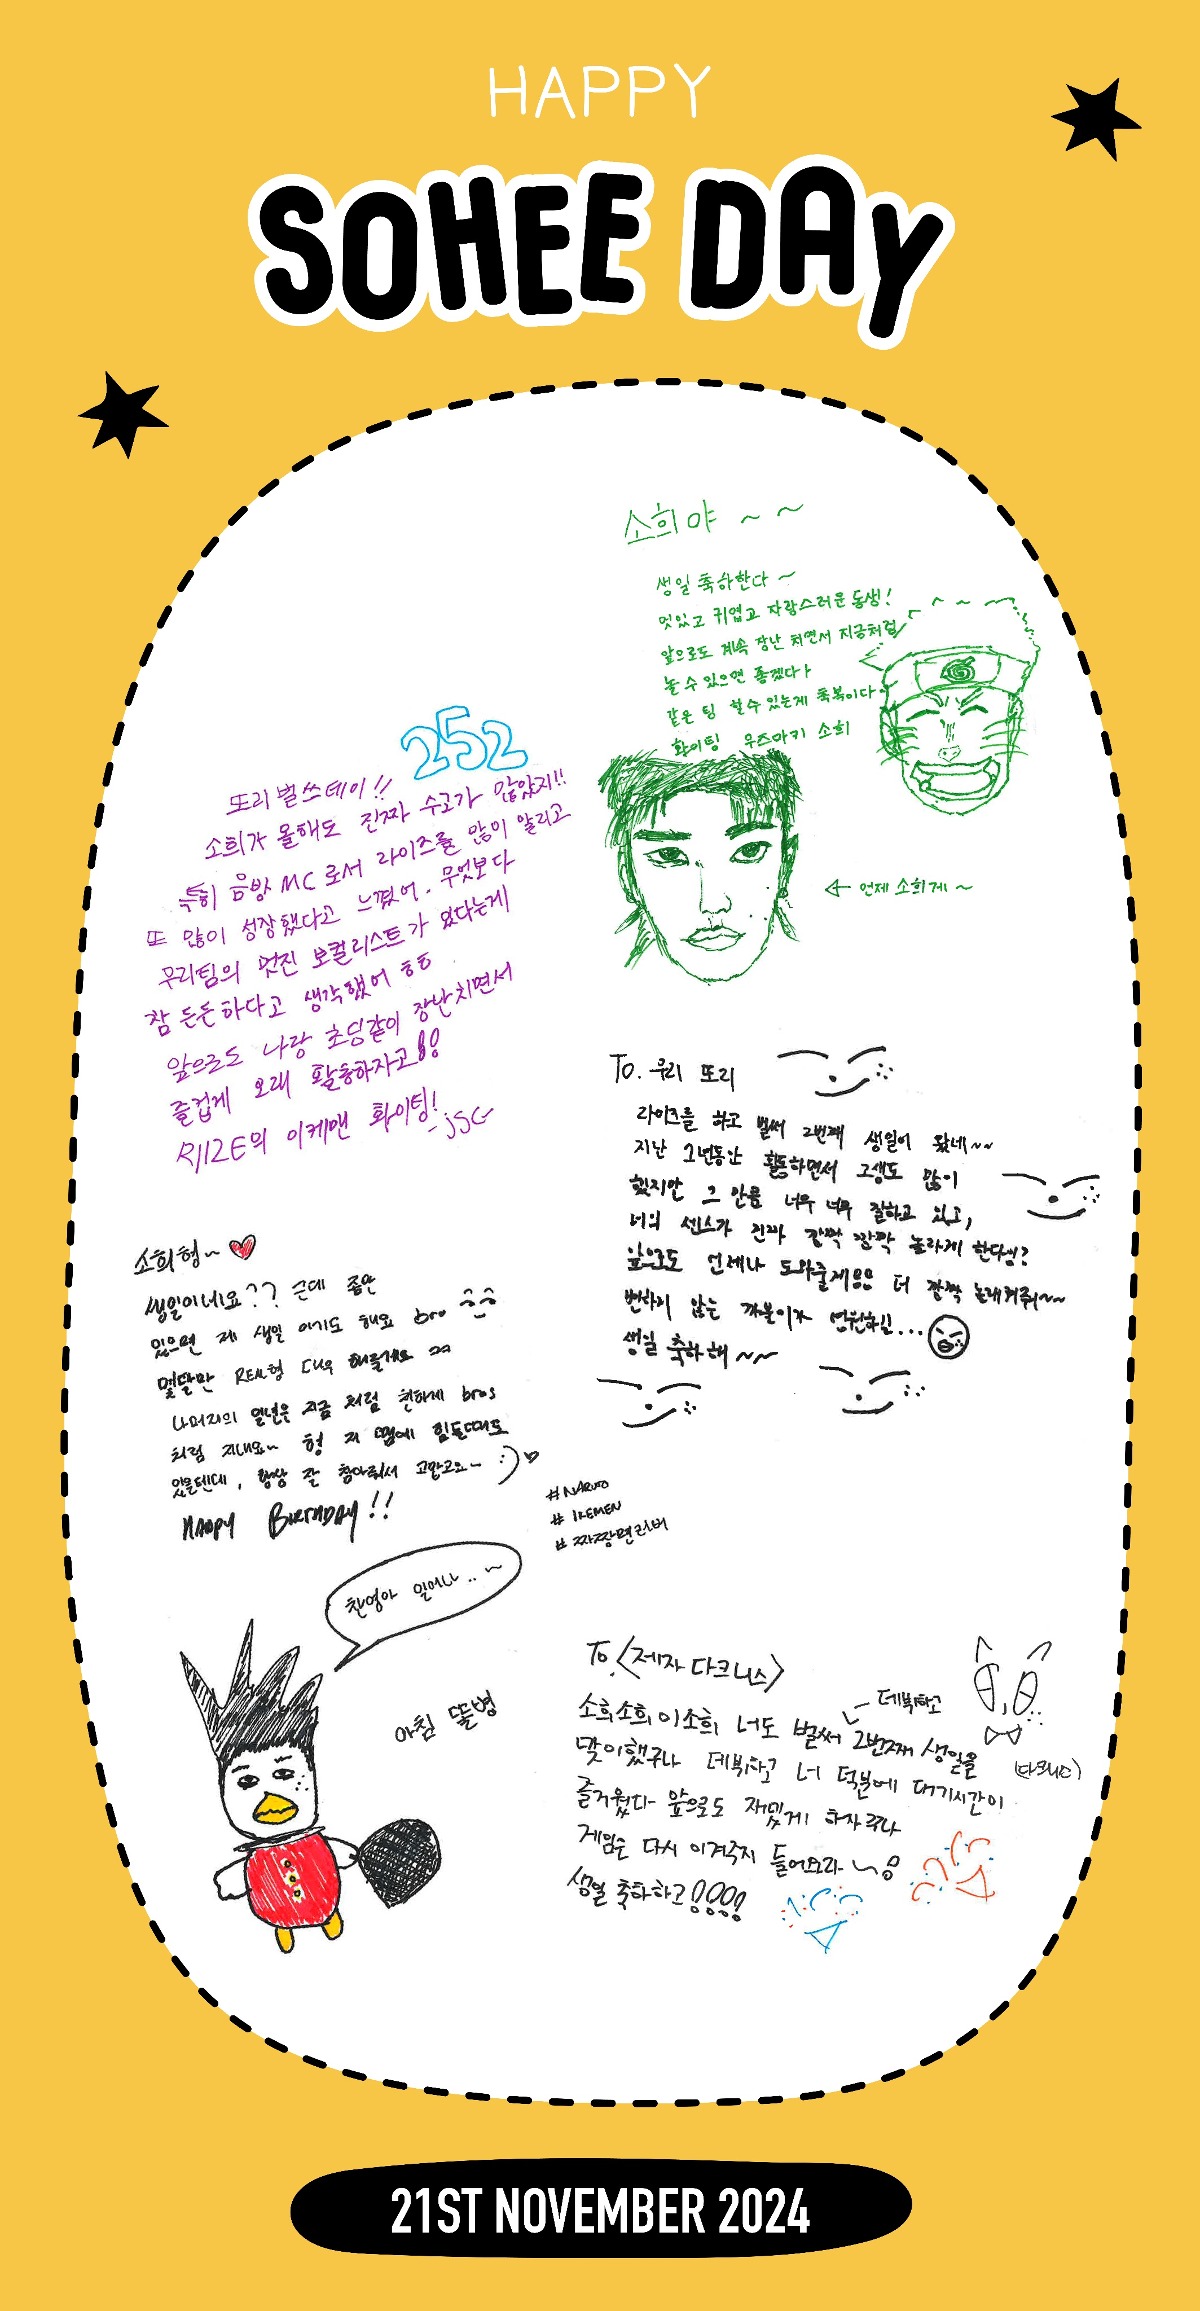 HAPPY
SOHEE DAY
소희야 ~ ~
생일 축하한다 ~
멋있고 귀엽고 자랑스러운 동생!
앞으로도 계속 장난 치면서 지금처럼
놀 수 있으면 좋겠다
같은 팀 할수 있는게 축복이다
화이팅 우즈마키 소희
언제 소희게 ~
252
또리 벌쓰데이!!
소희가 올해도 진짜 수고가 많았지!!
특히 음방 MC로서 라이즈를 많이 알리고
또 많이 성장했다고 느꼈어. 무엇보다
우리팀의 멋진 보컬리스트가 있다는게
참 든든하다고 생각했어 ㅎㅎ
앞으로도 나랑 초딩같이 장난치면서
즐겁게 오래 활동하자고!!
RIIZE의 이케맨 화이팅!
-JSC-
To. 우리 또리
라이즈를 하고 벌써 2번째 생일이 왔네~~
지난 1년동안 활동하면서 고생도 많이
했지만 그 만큼 너무 너무 잘하고 있고,
너의 센스가 진짜 깜짝 깜짝 놀라게 한다니?
앞으로도 언제나 도와줄게 더 깜짝 놀래켜줘~~
변하지 않는 까불이가 영원하길...
생일 축하해~~
소희형~
생일이네요?? 근데 좀만
있으면 제 생일 이기도 해요 bro
몇달만 REAL형 대우 해줄게요
나머지의 일년은 지금 처럼 친하게 bros
처럼 지내요~ 형 저 땜에 힘들때도
있을텐데, 항상 잘 참아줘서 고맙고요~ :)
HAPPY BIRTHDAY!!
#NARUTO
# IKEMEN
# 짜장면러버
찬영아 일어나..~
아침 똘병
To.〈제자 다크니스〉
데뷔하고
소희소희이소희 너도 벌써 2번째 생일을
맞이했구나 데뷔하고 너 덕분에 대기시간이
(다크니스)
즐거웠다 앞으로도 재밌게 하자구나
게임은 다시 이겨주지 들어오라
생일 축하하고!!!!
21ST NOVEMBER 2024